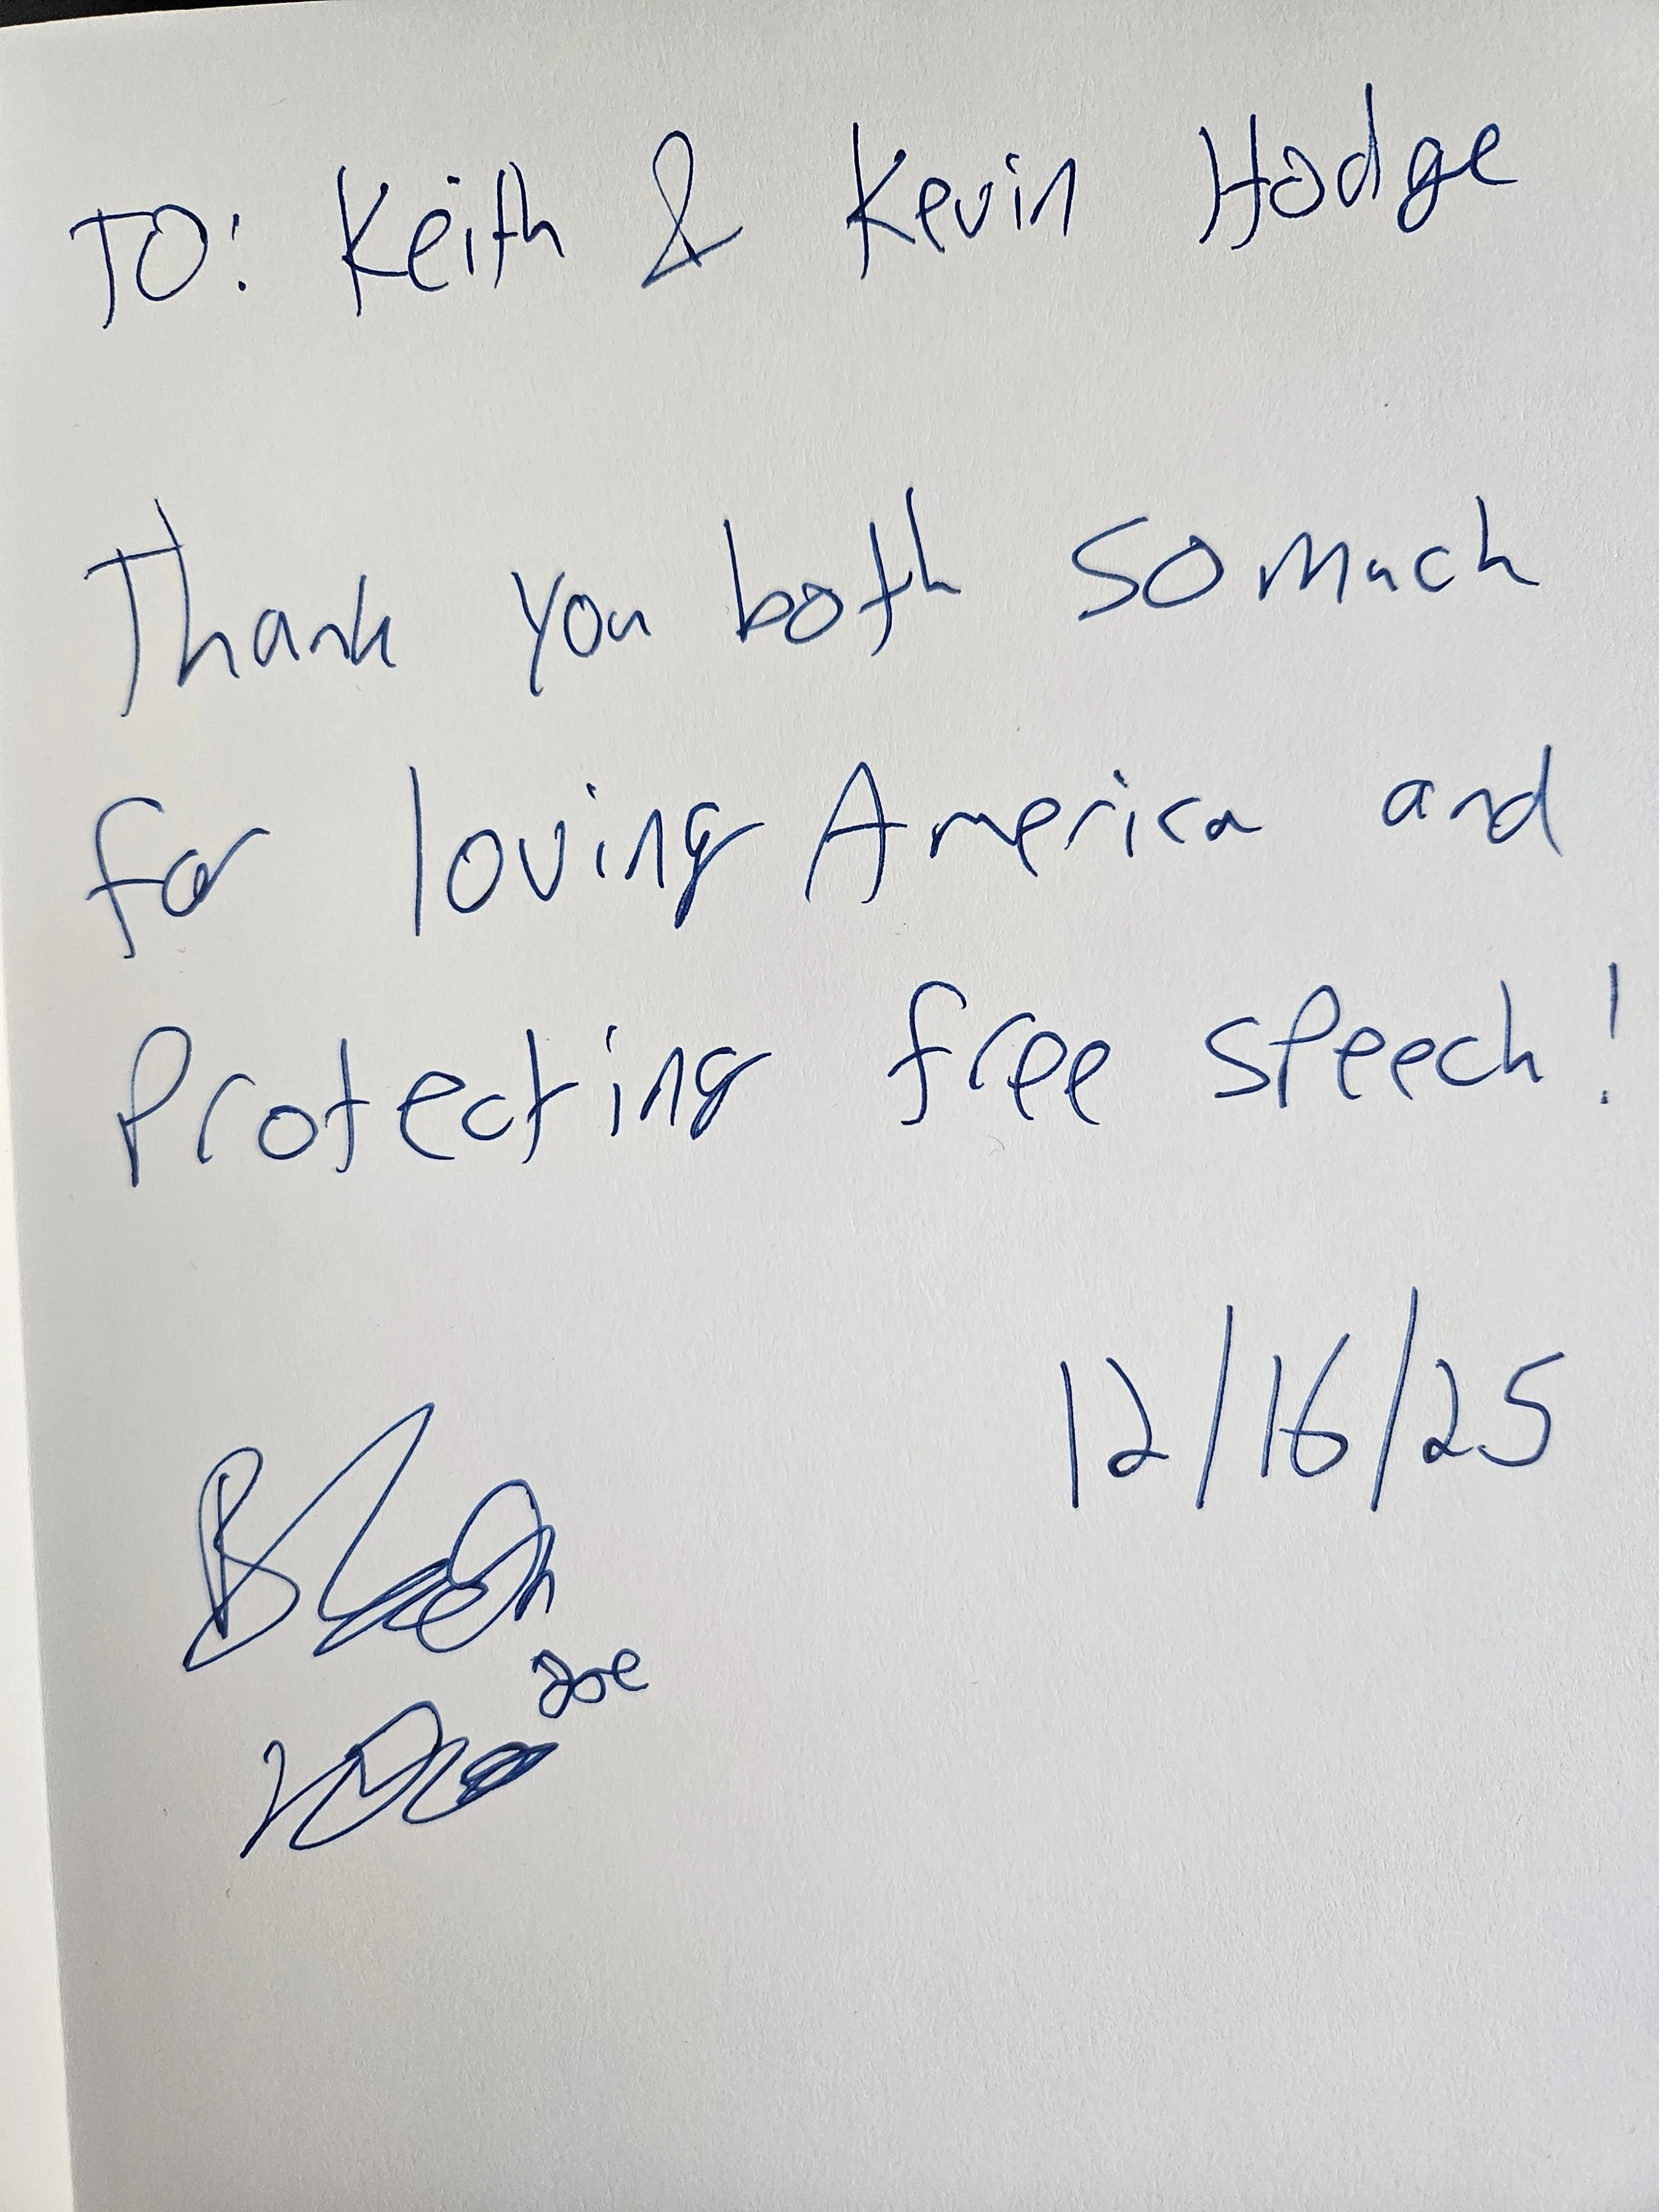 TO: Keith & Kevin Hodge
Thank you both so much
for loving America and
Protecting free speech!
12/16/25